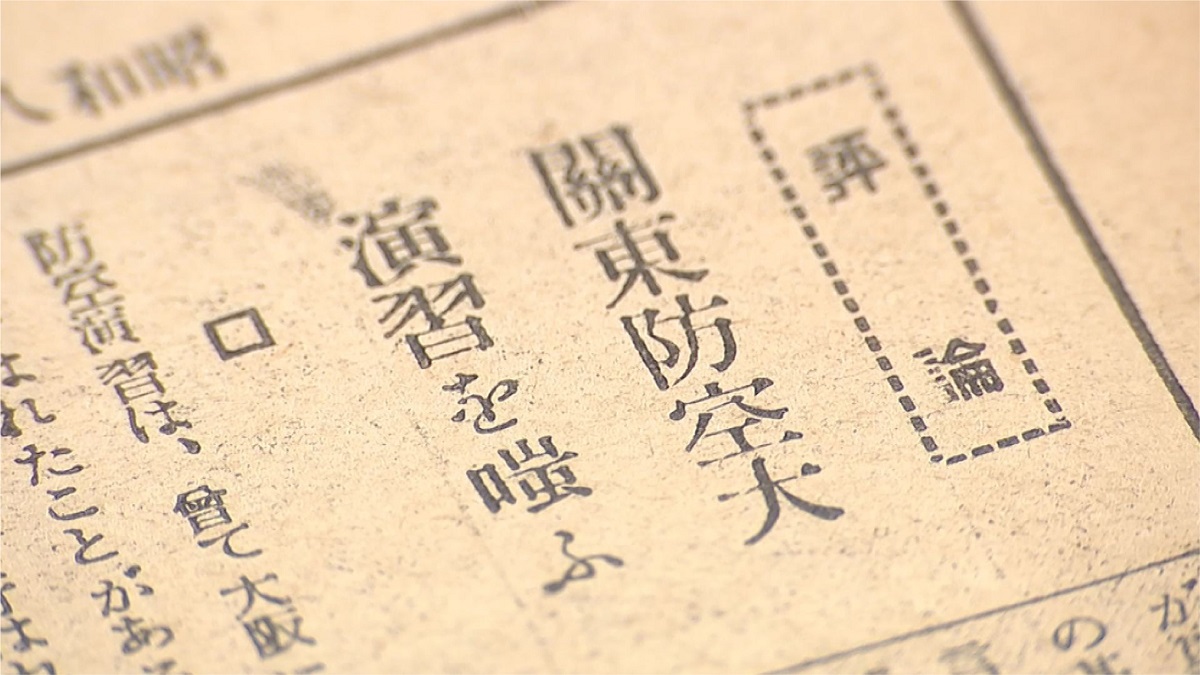 昭和八
評論
關東防空大
演習を嗤ふ
□
防空演習は、曾て大阪
れたことがあ
の
が